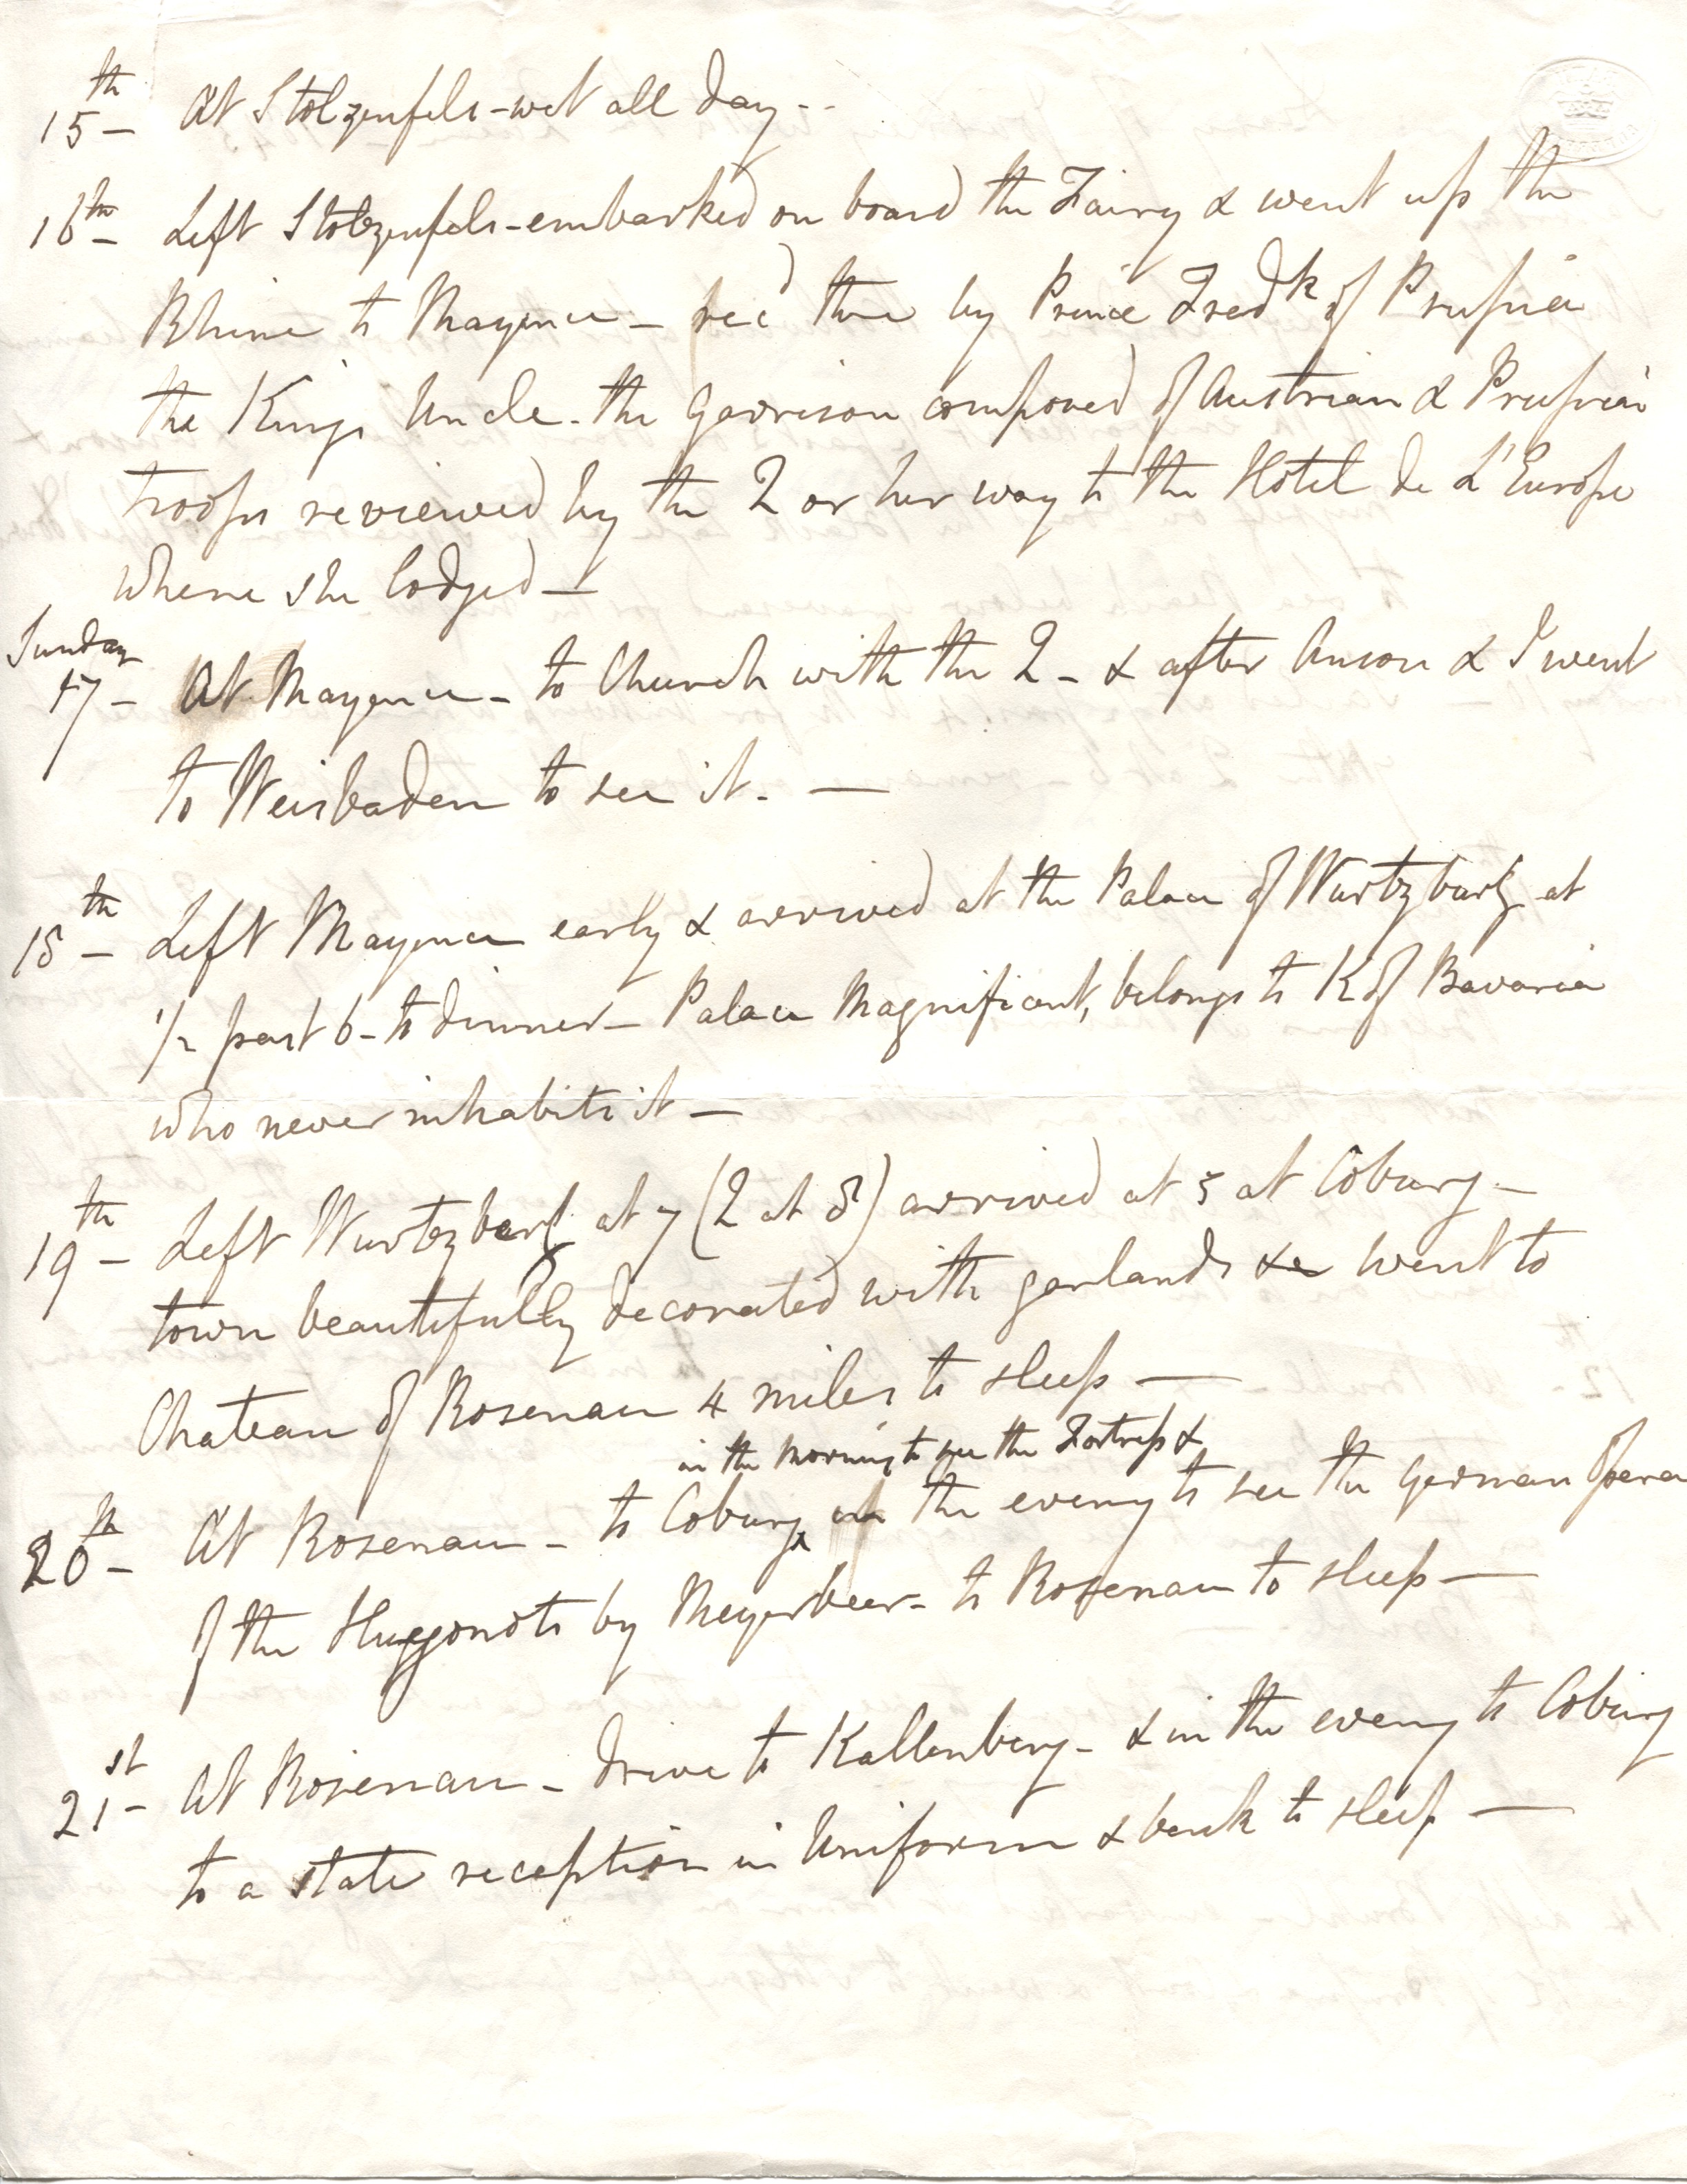 15th - At Stolzenfels - wet all day - -
16th - Left Stolzenfels - embarked on board the Fairy & went up the
Rhine to Mayence - recd there by Prince Fredk of Prussia
the Kings Uncle - the Garrison composed of Austrian & Prussian
troops reviewed by the Q on her way to the Hotel de L'Europe
where she lodged —
Sunday
17 - At Mayence - to Church with the Q - & after Anson & I went
to Weisbaden to see it. —
18th - Left Mayence early & arrived at the Palace of Wurtzburg at
1/2 past 6 - to dinner - Palace Magnificent, belongs to K of Bavaria
who never inhabits it —
19th - Left Wurtzburg at 7 (Q at 8) arrived at 5 at Coburg -
town beautifully decorated with garlands &c went to
Chateau of Rosenau 4 miles to sleep —
in the morning to see the Fortress &
20th - At Rosenau - to Coburg in the eveng to see the German Opera
of the Huggonots by Meyerbeer - to Rosenau to sleep —
21st - At Rosenau - drive to Kallenberg - & in the eveng to Coburg
to a state reception in Uniform & back to sleep —